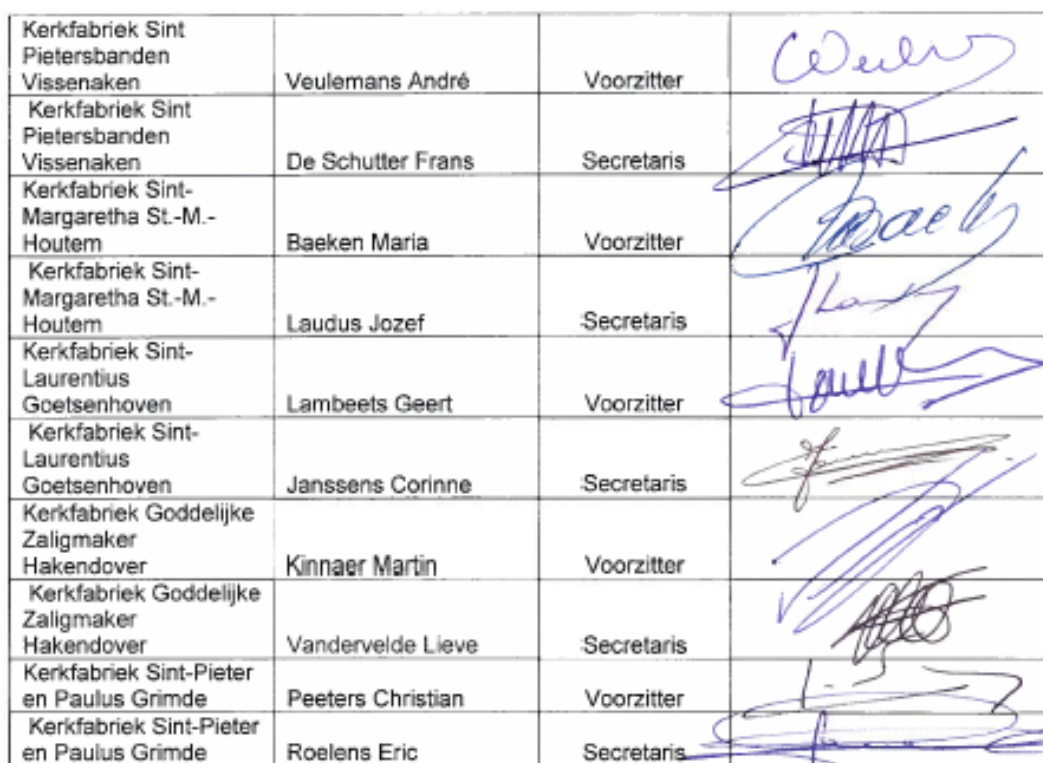 Kerkfabriek Sint
Pietersbanden
Vissenaken Veulemans André Voorzitter
Kerkfabriek Sint
Pietersbanden
Vissenaken De Schutter Frans Secretaris
Kerkfabriek Sint-
Margaretha St.-M.-
Houtem Baeken Maria Voorzitter
Kerkfabriek Sint-
Margaretha St.-M.-
Houtem Laudus Jozef Secretaris
Kerkfabriek Sint-
Laurentius
Goetsenhoven Lambeets Geert Voorzitter
Kerkfabriek Sint-
Laurentius
Goetsenhoven Janssens Corinne Secretaris
Kerkfabriek Goddelijke
Zaligmaker
Hakendover Kinnaer Martin Voorzitter
Kerkfabriek Goddelijke
Zaligmaker
Hakendover Vandervelde Lieve Secretaris
Kerkfabriek Sint-Pieter
en Paulus Grimde Peeters Christian Voorzitter
Kerkfabriek Sint-Pieter
en Paulus Grimde Roelens Eric Secretaris